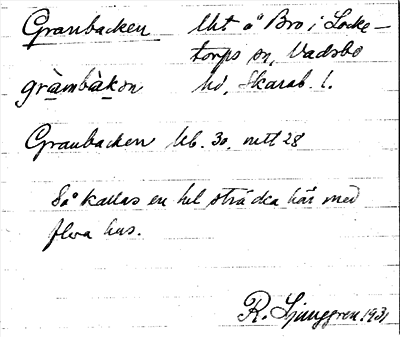 Granbacken lht å Bro i Locke-
torps sn, Vadsbo
gràmbàkən hd, Skarab. l.
Granbacken lib. 30, nitt 28
Så kallas en hel sträcka här med
flera hus.
R. Ljunggren 1931